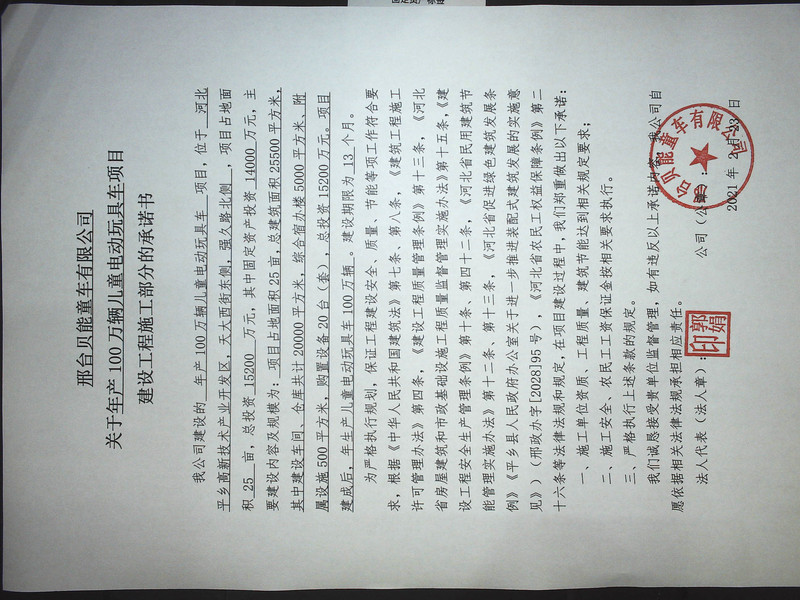 邢台贝能童车有限公司
关于年产100万辆儿童电动玩具车项目
建设工程施工部分的承诺书
我公司建设的 年产100万辆儿童电动玩具车 项目，位于 河北
平乡高新技术产业开发区，天大西街东侧，强久路北侧 ，项目占地面
积 25 亩，总投资 15200 万元，其中固定资产投资 14000 万元，主
要建设内容及规模为：项目占地面积25亩，总建筑面积25500平方米，
其中建设车间、仓库共计20000平方米，综合宿办楼5000平方米、附
属设施500平方米，购置设备20台（套），总投资15200万元。项目
建成后，年生产儿童电动玩具车100万辆 。建设期限为 13 个月。
为严格执行规划，保证工程建设安全、质量、节能等项工作符合要
求，根据《中华人民共和国建筑法》第七条、第八条，《建筑工程施工
许可管理办法》第四条，《建设工程质量管理条例》第十三条，《河北
省房屋建筑和市政基础设施工程质量监督管理实施办法》第十五条，《建
设工程安全生产管理条例》第十条、第四十二条，《河北省民用建筑节
能管理实施办法》第十二条、第十三条，《河北省促进绿色建筑发展条
例》《平乡县人民政府办公室关于进一步推进装配式建筑发展的实施意
见》）（邢政办字[2028]95号），《河北省农民工权益保障条例》第二
十六条等法律法规和规定，在项目建设过程中，我们郑重做出以下承诺：
一、施工单位资质、工程质量、建筑节能达到相关规定要求；
二、施工安全、农民工工资保证金按相关要求执行。
三、严格执行上述条款的规定。
我们诚恳接受贵单位监督管理，如有违反以上承诺内容，我公司自
愿依据相关法律法规承担相应责任。
法人代表（法人章）：
郭娟印
公司（公章）：
贝能童车有限公司
2021年2月23日